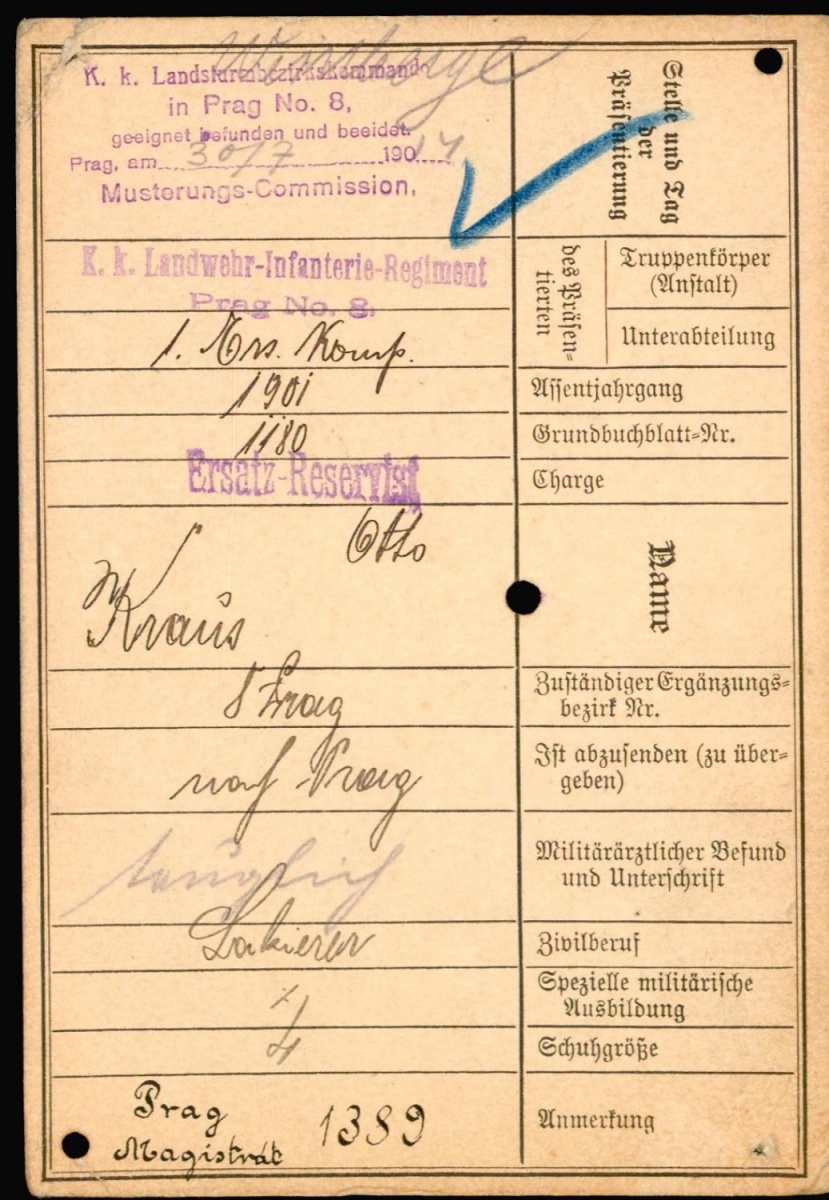 K. k. Landsturmbezirkskommando
in Prag No. 8,
geeignet befunden und beeidet.
Prag, am 30/7 190 14
Musterungs-Commission,
Stelle und Tag
der
Präsentierung
K. k. Landwehr-Infanterie-Regiment
Prag No. 8.
des Präsen-
tierten
Truppenkörper
(Anstalt)
1. Ers. Komp.
Unterabteilung
1901
Assentjahrgang
1180
Grundbuchblatt-Nr.
Ersatz-Reservist
Charge
Otto
Kraus
Name
8 Prag
Zuständiger Ergänzungs-
bezirk Nr.
nach Prag
Ist abzusenden (zu über-
geben)
tauglich
Militärärztlicher Befund
und Unterschrift
Lakierer
Zivilberuf
Spezielle militärische
Ausbildung
4
Schuhgröße
Prag 1389
Magistrat
Anmerkung